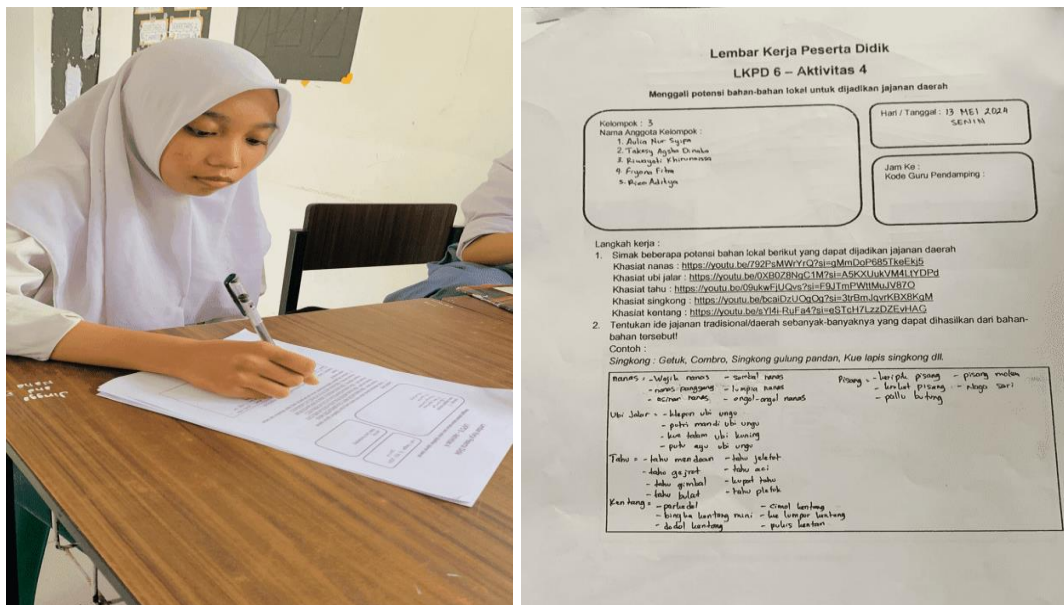 Lembar Kerja Peserta Didik
LKPD 6 – Aktivitas 4
Menggali potensi bahan-bahan lokal untuk dijadikan jajanan daerah
Kelompok : 3
Nama Anggota Kelompok :
1. Aulia Nur Syipa
2. Takesy Aysha Dinaba
3. Riwayati Khirunnissa
4. Fryana Fitra
5. Rico Aditya
Hari / Tanggal : 13 MEI 2024
SENIN
Jam Ke :
Kode Guru Pendamping :
Langkah kerja :
1. Simak beberapa potensi bahan lokal berikut yang dapat dijadikan jajanan daerah
Khasiat nanas : https://youtu.be/792PsMWrYrQ?si=gMmDoP685TkeEkj5
Khasiat ubi jalar : https://youtu.be/0XB0Z8NgC1M?si=A5KXUukVM4LtYDPd
Khasiat tahu : https://youtu.be/09ukwFjUQvs?si=F9JTmPWttMuJV87O
Khasiat singkong : https://youtu.be/bcaiDzUOgOg?si=3trBmJqvrKBX8KgM
Khasiat kentang : https://youtu.be/sYl4i-RuFa4?si=eSTcH7LzzDZEvHAG
2. Tentukan ide jajanan tradisional/daerah sebanyak-banyaknya yang dapat dihasilkan dari bahan-
bahan tersebut!
Contoh :
Singkong : Getuk, Combro, Singkong gulung pandan, Kue lapis singkong dll.
nanas = - Wajik nanas - sambal nanas
- nanas panggang - lumpia nanas
- asinan nanas - ongol-ongol nanas
Pisang = - keripik pisang - pisang molen
- brobat pisang - naga sari
- pallu butung
Ubi Jalar = - klepon ubi ungu
- putri mandi ubi ungu
- kue talam ubi kuning
- putu ayu ubi ungu
Tahu = - tahu mendoan - tahu jeletot
- tahu gejrot - tahu aci
- tahu gimbal - kupat tahu
- tahu bulat - tahu pletok
Kentang = - perkedel - cimol kentang
- bingka kentang mini - kue lumpur kentang
- dodol kentang - pukis kentan